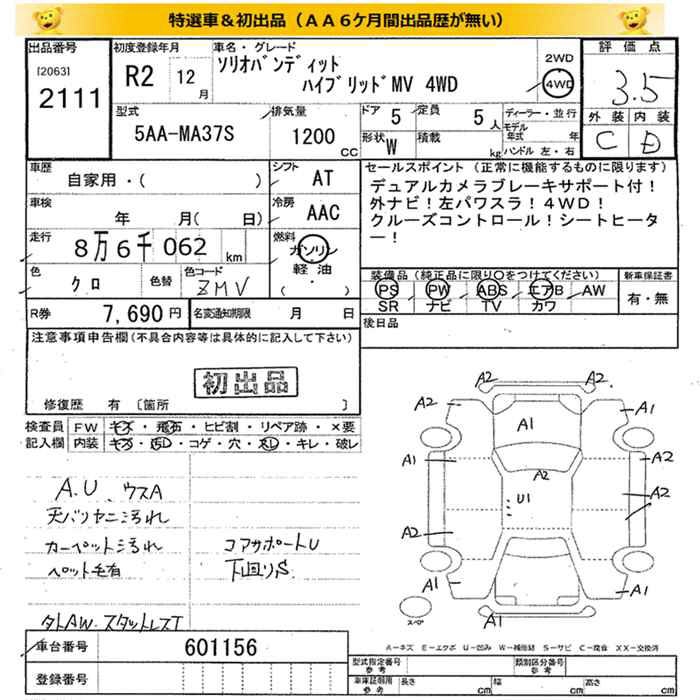 特選車＆初出品（ＡＡ６ケ月間出品歴が無い）
出品番号 初度登録年月 車名・グレード 評価点
[2063] 2111
R2 12月
ソリオバンディット
ハイブリッドMV 4WD
2WD
4WD
3.5
外装 内装
C D
型式 排気量 ドア 5 定員 5人 ディーラー・並行
5AA-MA37S 1200cc
形状 W 積載 kg
モデル年式 年
ハンドル 左・右
車歴 自家用・( )
シフト AT
車検 年 月(日)
冷房 AAC
走行 8万6千062km
燃料 ガソリン
軽油
色 クロ 色替 色コード ZMV
R券 7,690円 名変通知期限 月 日
セールスポイント（正常に機能するものに限ります）
デュアルカメラブレーキサポート付！
外ナビ！左パワスラ！4WD！
クルーズコントロール！シートヒータ
ー！
装備品（純正品に限り〇をつけてください） 新車保証書
PS PW ABS エアB AW 有・無
SR ナビ TV カワ
後日品
注意事項申告欄（不具合内容等は具体的に記入して下さい）
初出品
修復歴 有 〔箇所 〕
検査員 FW キズ・飛石・ヒビ割・リペア跡・×要
記入欄 内装 キズ・汚・コゲ・穴・スレ・キレ・破レ
A.U、ウスA
天バリヤニ汚れ
カーペット汚れ コアサポートU
ペット毛有 下回りS
外AW.スタッドレスT
A2 A2
A2 A1
A1
A1 A2 A2
U1 A2
A2
A1 A1
A1
スペア
車台番号 601156
登録番号
A－キズ E－エクボ U－凹み W－補修跡 S－サビ C－腐食 XX－交換済
型式指定番号 参考 類別区分番号 参考
車庫証明用 参考 長さ cm 幅 cm 高さ cm